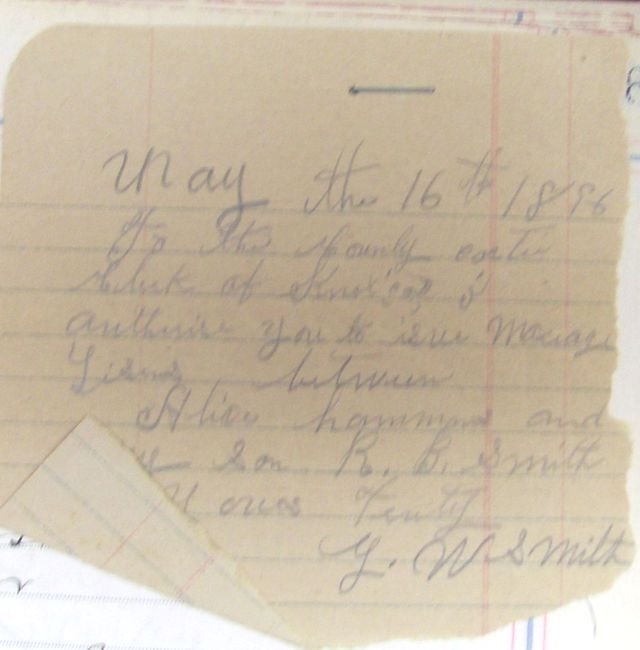 May the 16th 1896
To the County cortie
Clerk of Knox
autherise you to isue Mariage
Lisens between
Alice hammons and
my son R. B. Smith
Yores Truly
G. W Smith